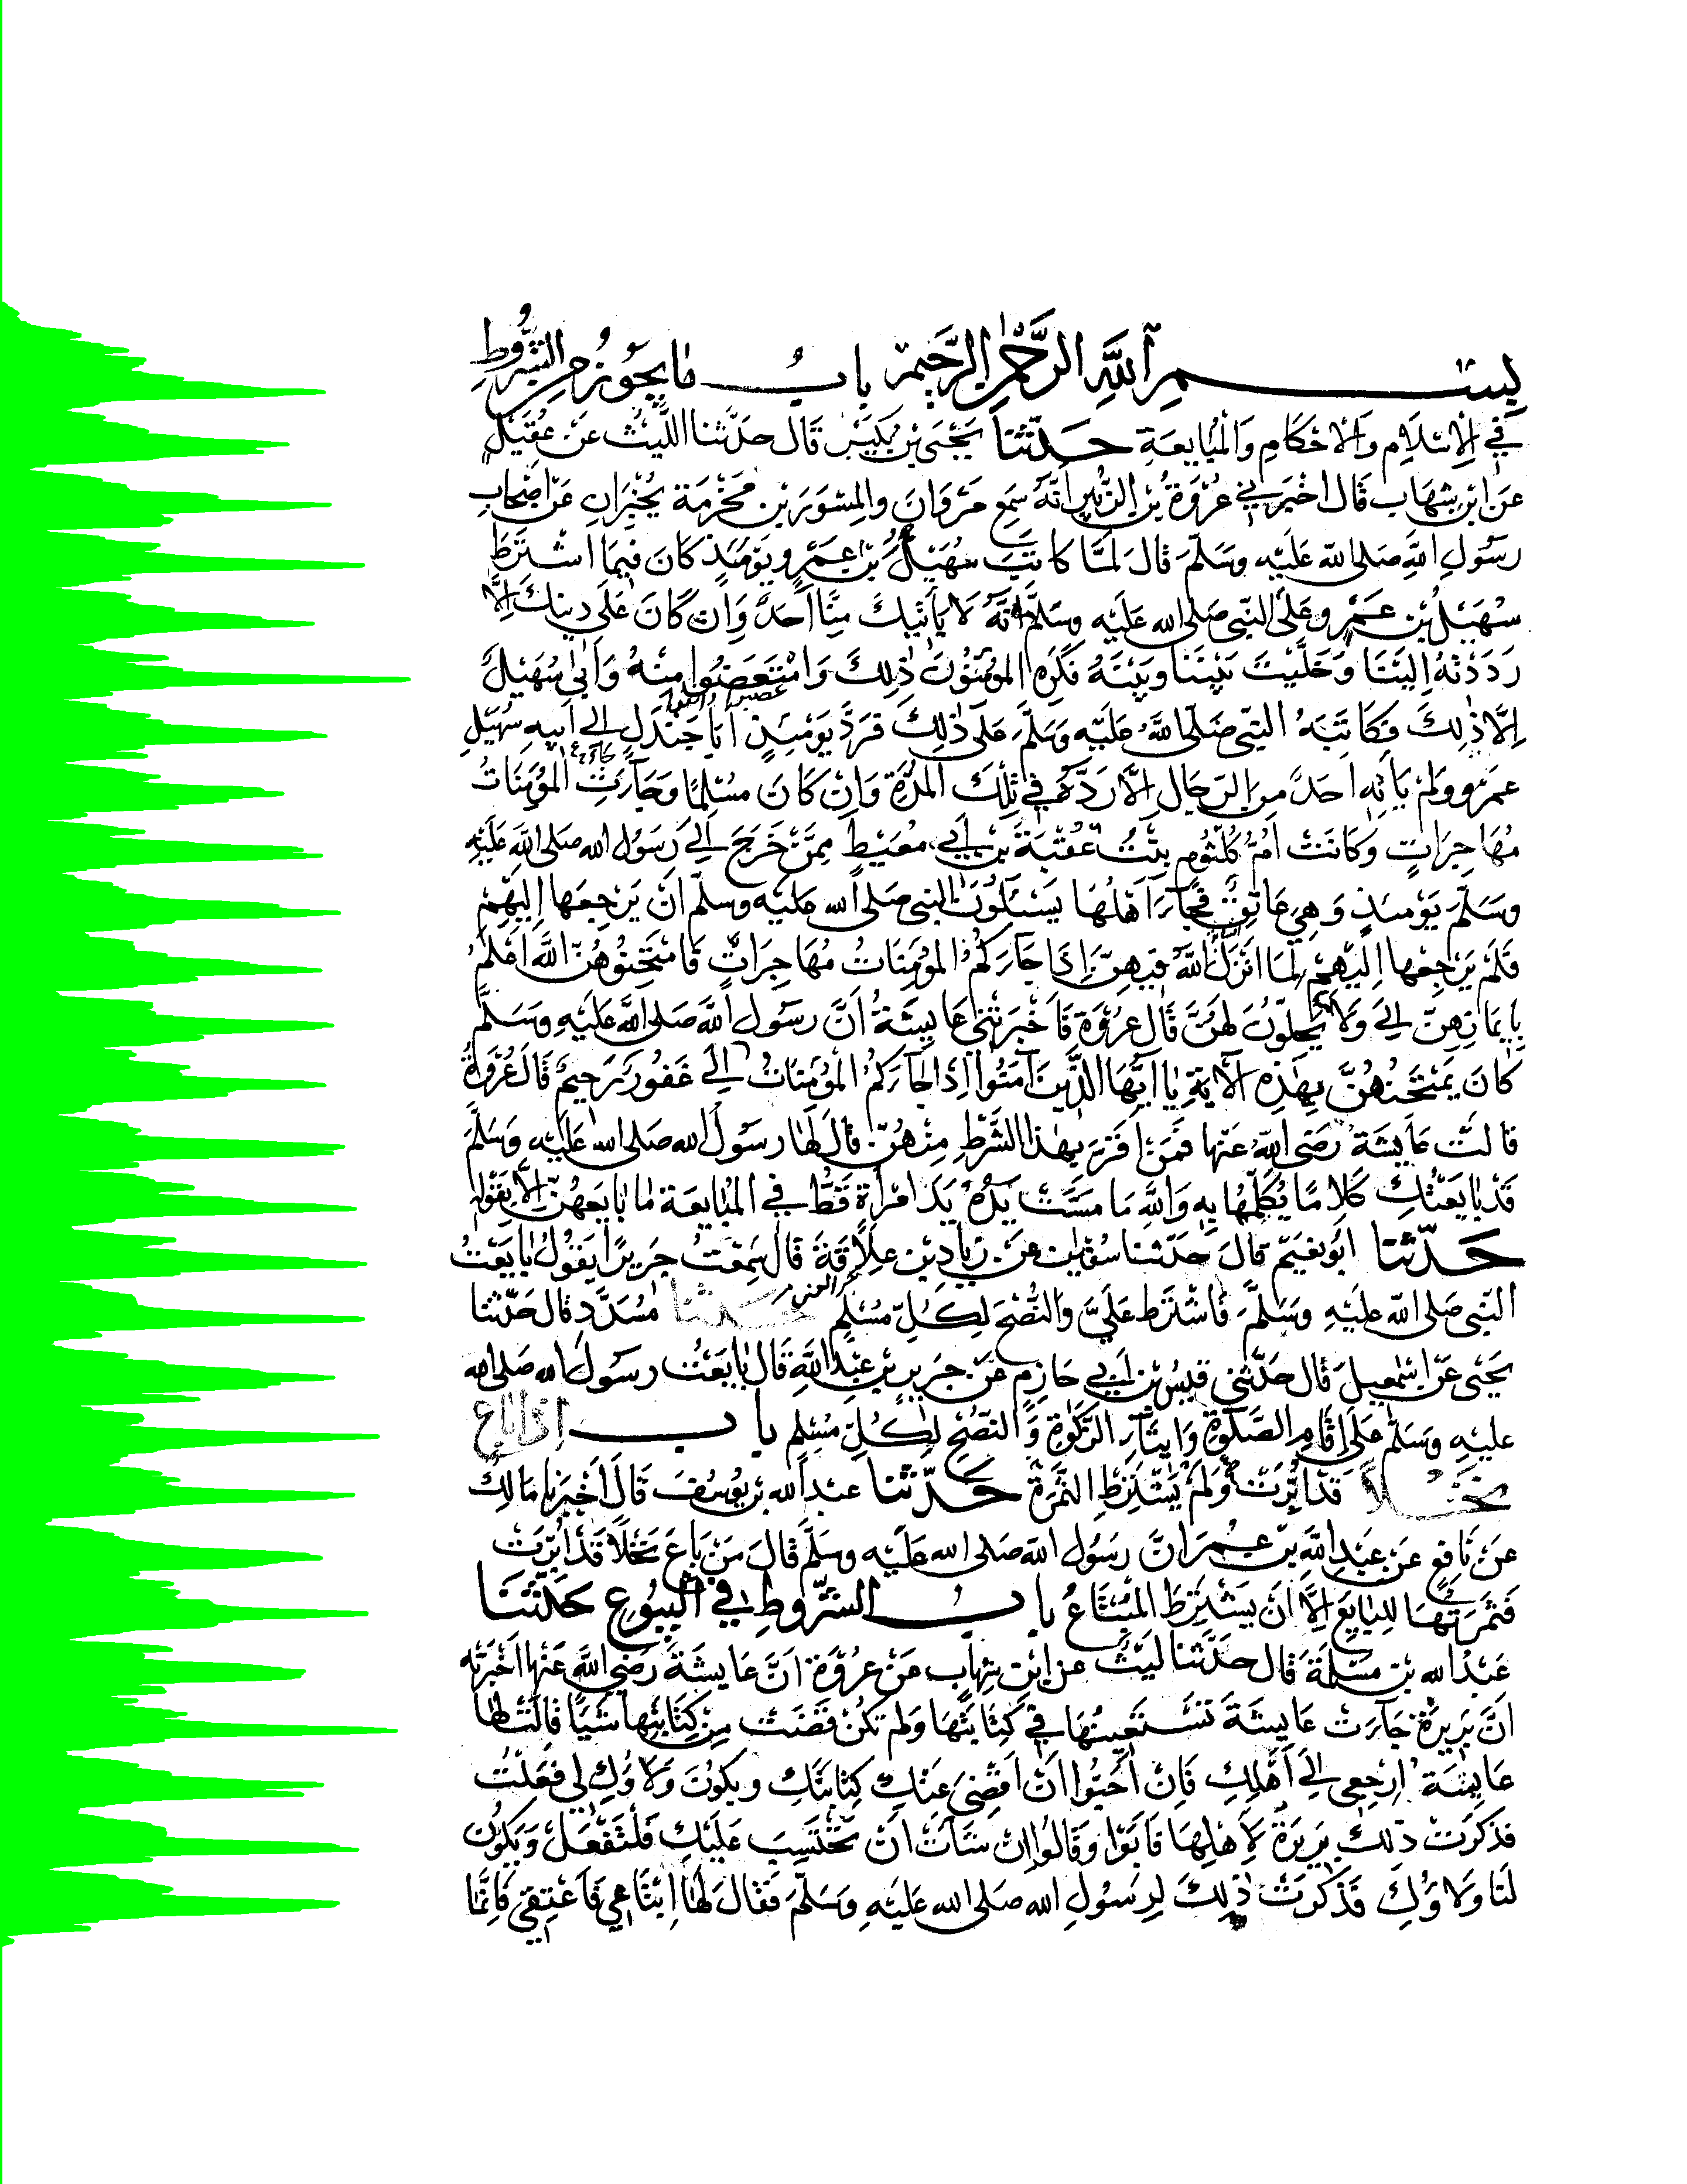 بسم الله الرحمن الرحيم باب ما يجوز من الشروط
في الاسلام والاحكام والمبايعة حدثنا يحيى بن بكير قال حدثنا الليث عن عقيل
عن ابن شهاب قال اخبرني عروة بن الزبير انه سمع مروان والمسور بن مخرمة يخبران عن اصحاب
رسول الله صلى الله عليه وسلم قال لما كاتب سهيل بن عمرو يومئذ كان فيما اشترط
سهيل بن عمرو على النبي صلى الله عليه وسلم انه لا يأتيك منا احد وان كان على دينك الا
رددته الينا وخليت بيننا وبينه فكره المؤمنون ذلك وامتعضوا منه وابى سهيل
الا ذلك فكاتبه النبي صلى الله عليه وسلم على ذلك فرد يومئذ ابا جندل الى ابيه سهيل
عمرو ولم يأته احد من الرجال الا رده في تلك المدة وان كان مسلما وجاءت المؤمنات
مهاجرات وكانت ام كلثوم بنت عقبة بن ابي معيط ممن خرج الى رسول الله صلى الله عليه
وسلم يومئذ وهي عاتق فجاء اهلها يسئلون النبي صلى الله عليه وسلم ان يرجعها اليهم
فلم يرجعها اليهم لما انزل الله فيهن اذا جاءكم المؤمنات مهاجرات فامتحنوهن الله اعلم
بايمانهن الى ولا يحلون لهن قال عروة فاخبرتني عايشة ان رسول الله صلى الله عليه وسلم
كان يمتحنهن بهذه الآية يا ايها الذين آمنوا اذا جاءكم المؤمنات الى غفور رحيم قال عروة
قالت عايشة رضي الله عنها فمن اقر بهذا الشرط منهن قال لها رسول الله صلى الله عليه وسلم
قد بايعتك كلاما يكلمها به والله ما مست يده يد امرأة قط في المبايعة ما بايعهن الا بقوله
حدثنا ابو نعيم قال حدثنا سفين عن زياد بن علاقة قال سمعت جريرا يقول بايعت
النبي صلى الله عليه وسلم فاشترط علي والنصح لكل مسلم حدثنا مسدد قال حدثنا
يحيى عن اسمعيل قال حدثني قيس بن ابي حازم عن جرير بن عبد الله قال بايعت رسول الله صلى الله
عليه وسلم على اقام الصلوة وايتاء الزكوة والنصح لكل مسلم باب اذا باع
نخلا قد ابرت ولم يشترط الثمرة حدثنا عبد الله بن يوسف قال اخبرنا مالك
عن نافع عن عبد الله بن عمر ان رسول الله صلى الله عليه وسلم قال من باع نخلا قد ابرت
فثمرتها للبايع الا ان يشترط المبتاع باب الشروط في البيوع حدثنا
عبد الله بن مسلمة قال حدثنا ليث عن ابن شهاب عن عروة ان عايشة رضي الله عنها اخبرته
ان بريرة جاءت عايشة تستعينها في كتابتها ولم تكن قضت من كتابتها شيئا قالت لها
عايشة ارجعي الى اهلك فان احبوا ان اقضي عنك كتابتك ويكون ولاؤك لي فعلت
فذكرت ذلك بريرة لاهلها فابوا وقالوا ان شاءت ان تحتسب عليك فلتفعل ويكون
لنا ولاؤك فذكرت ذلك لرسول الله صلى الله عليه وسلم فقال لها ابتاعي فاعتقي فانما